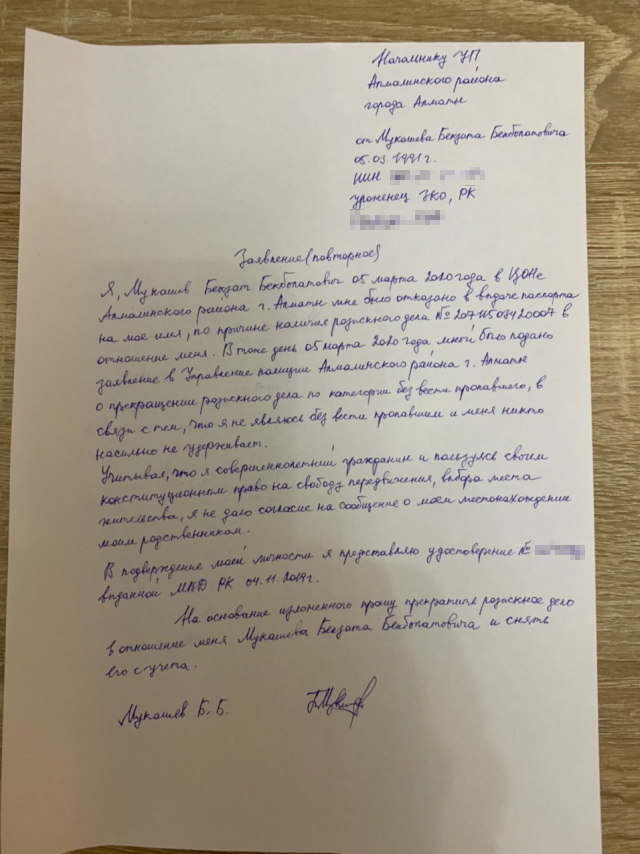 Начальнику УП
Алмалинского района
города Алматы
от Мукашева Бекзата Бекболатовича
05.03.1991 г.
ИИН
уроженец ЗКО, РК
Заявление (повторное)
Я, Мукашев Бекзат Бекболатович 05 марта 2020 года в ЦОНе
Алмалинского района г. Алматы мне было отказано в выдаче паспорта
на мое имя, по причине наличия розыскного дела № 20711503420007 в
отношение меня. В тоже день 05 марта 2020 года мной было подано
заявление в Управление полиции Алмалинского района г. Алматы
о прекращении розыскного дела по категории без вести пропавшего, в
связи с тем, что я не являюсь без вести пропавшим и меня никто
насильно не удерживает.
Учитывая, что я совершеннолетний гражданин и пользуясь своем
конституционным право на свободу передвижения, выбора места
жительства, я не даю согласие на сообщение о моем местонахождении
моим родственникам.
В подверждение моей личности я представляю удостоверение №
выданной МВД РК 04.11.2019г.
На основание изложенного прошу прекратить розыскное дело
в отношение меня Мукашева Бекзата Бекболатовича и снять
его с учета.
Мукашев Б. Б.